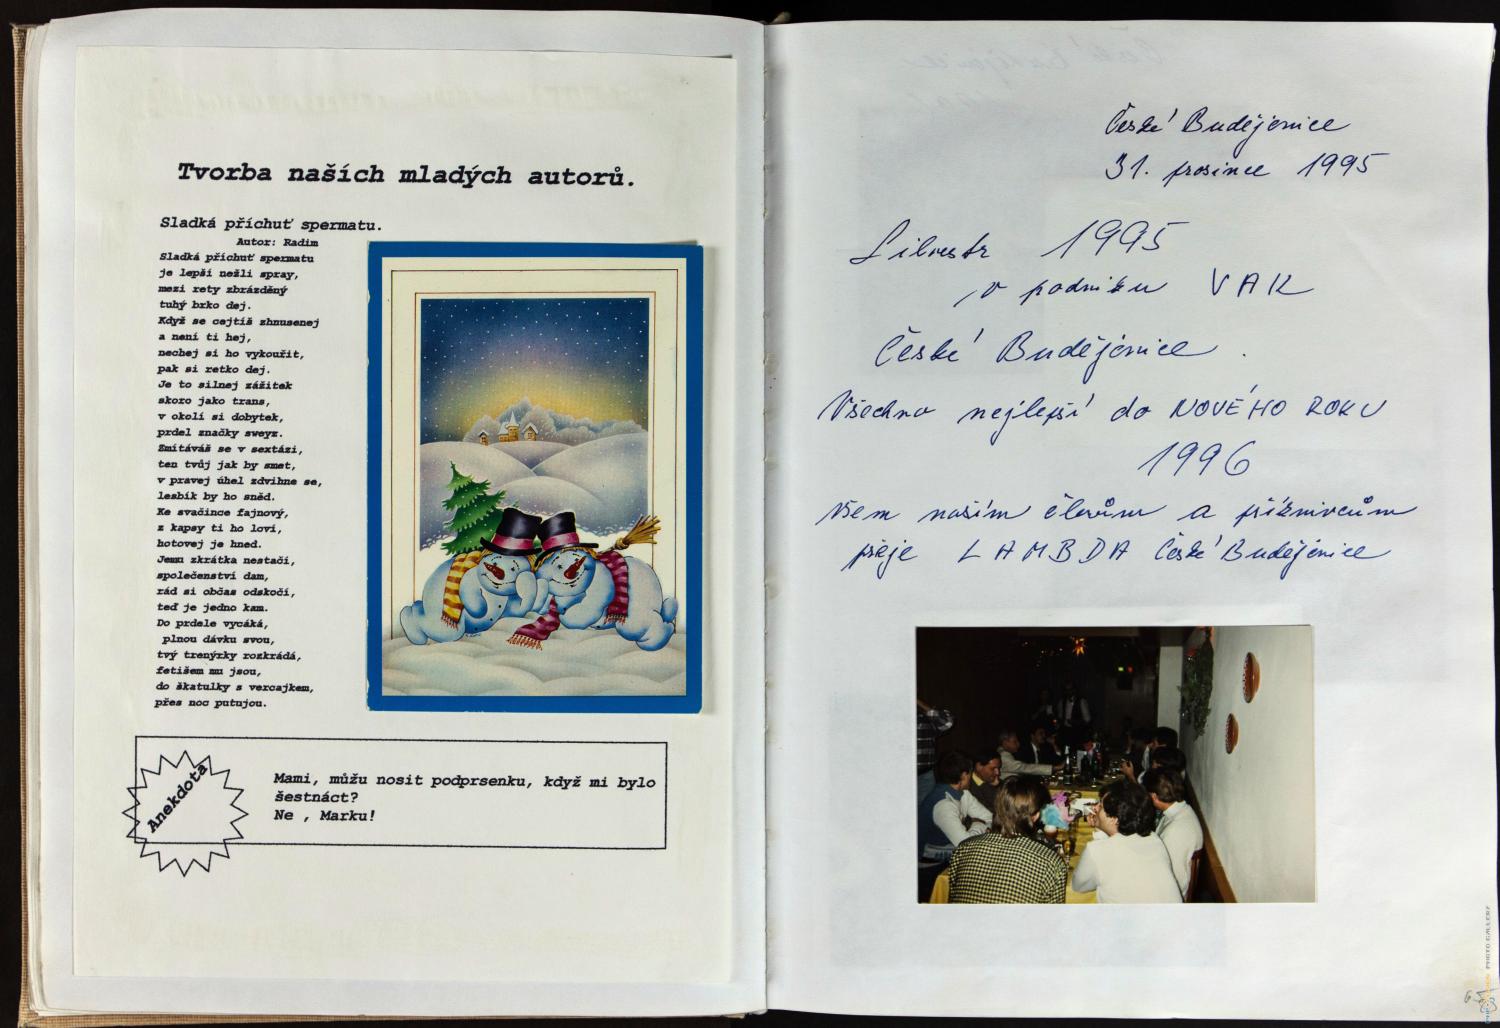 Tvorba naších mladých autorů.
Sladká příchuť spermatu.
Autor: Radim
Sladká příchuť spermatu
je lepší nežli spray,
mezi rety zbrázděný
tuhý brko dej.
Když se cejtíš zhnusenej
a není ti hej,
nechej si ho vykouřit,
pak si retko dej.
Je to silnej zážitek
skoro jako trans,
v okolí si dobytek,
prdel značky sweyz.
Zmítáváš se v sextázi,
ten tvůj jak by smet,
v pravej úhel zdvihne se,
lesbík by ho sněd.
Ke svačince fajnový,
z kapsy ti ho loví,
hotovej je hned.
Jemu zkrátka nestačí,
společenství dam,
rád si občas odskočí,
teď je jedno kam.
Do prdele vycáká,
plnou dávku svou,
tvý trenýrky rozkrádá,
fetišem mu jsou,
do škatulky s vercajkem,
přes noc putujou.
Anekdota
Mami, můžu nosit podprsenku, když mi bylo
šestnáct?
Ne , Marku!
České Budějovice
31. prosince 1995
Silvestr 1995
v podniku VAK
České Budějovice.
Všechno nejlepší do NOVÉHO ROKU
1996
všem naším členům a příznivcům
přeje LAMBDA České Budějovice
PHOTO GALLERY